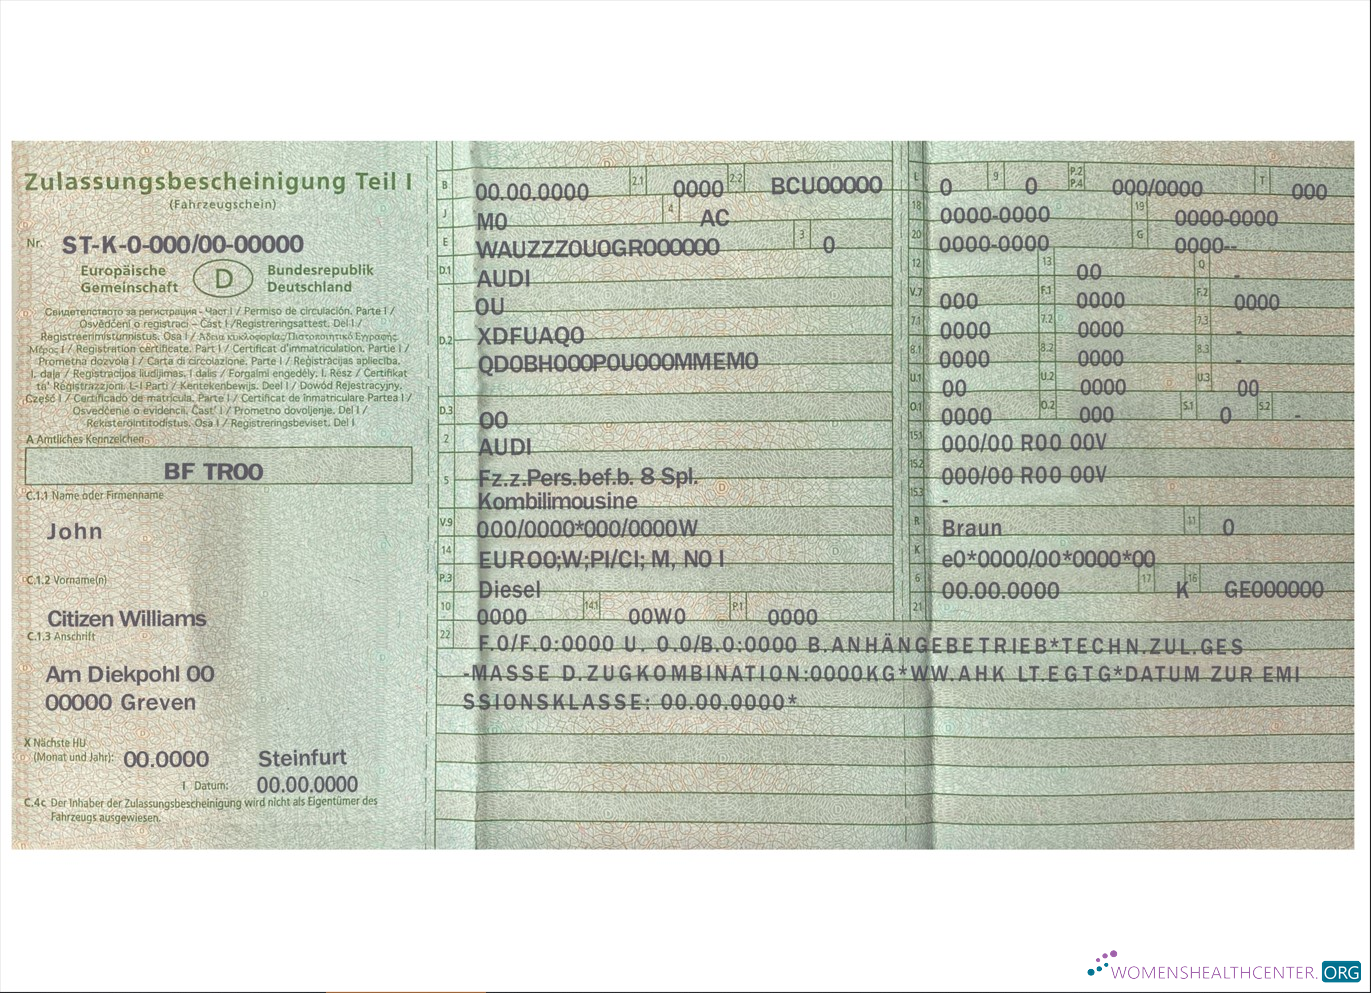 Zulassungsbescheinigung Teil I
(Fahrzeugschein)
Nr. ST-K-0-000/00-00000
Europäische Gemeinschaft D Bundesrepublik Deutschland
Свидетелството за регистрация - Част I / Permiso de circulación. Parte I /
Osvědčení o registraci – Část I /Registreringsattest. Del I /
Registreerimistunnistus. Osa I / Άδεια κυκλοφορίας/Πιστοποιητικό Εγγραφής.
Μέρος I / Registration certificate. Part I / Certificat d'immatriculation. Partie I /
Prometna dozvola I / Carta di circolazione. Parte I / Reģistrācijas apliecība.
I. daļa / Registracijos liudijimas. I dalis / Forgalmi engedély. I. Rész / Ċertifikat
ta' Reġistrazzjoni. L-I Parti / Kentekenbewijs. Deel I / Dowód Rejestracyjny.
Część I / Certificado de matrícula. Parte I / Certificat de înmatriculare Partea I /
Osvedčenie o evidencii. Časť I / Prometno dovoljenje. Del I /
Rekisteröintitodistus. Osa I / Registreringsbeviset. Del I
A Amtliches Kennzeichen
BF TR00
C.1.1 Name oder Firmenname
John
C.1.2 Vorname(n)
Citizen Williams
C.1.3 Anschrift
Am Diekpohl 00
00000 Greven
X Nächste HU
(Monat und Jahr): 00.0000 Steinfurt
I Datum: 00.00.0000
C.4c Der Inhaber der Zulassungsbescheinigung wird nicht als Eigentümer des
Fahrzeugs ausgewiesen.
B 00.00.0000 2.1 0000 2.2 BCU00000
J M0 4 AC
E WAUZZZ0U0GR000000 3 0
D.1 AUDI
0U
D.2 XDFUAQ0
QD0BH000P0U000MMEM0
D.3 00
2 AUDI
5 Fz.z.Pers.bef.b. 8 Spl.
Kombilimousine
V.9 000/0000*000/0000W
14 EURO0;W;PI/CI; M, NO I
P.3 Diesel
10 0000 14.1 00W0 P.1 0000
L 0 9 0 P.2 P.4 000/0000 T 000
18 0000-0000 19 0000-0000
20 0000-0000 G 0000--
12 13 00 Q -
V.7 000 F.1 0000 F.2 0000
7.1 0000 7.2 0000 7.3 -
8.1 0000 8.2 0000 8.3 -
U.1 00 U.2 0000 U.3 00
O.1 0000 O.2 000 S.1 0 S.2 -
15.1 000/00 R00 00V
15.2 000/00 R00 00V
15.3 -
R Braun 11 0
K e0*0000/00*0000*00
6 00.00.0000 17 K 16 GE000000
21
22 F.0/F.0:0000 U. 0.0/B.0:0000 B.ANHÄNGEBETRIEB*TECHN.ZUL.GES
-MASSE D.ZUGKOMBINATION:0000KG*WW.AHK LT.EGTG*DATUM ZUR EMI
SSIONSKLASSE: 00.00.0000*
WOMENSHEALTHCENTER.ORG